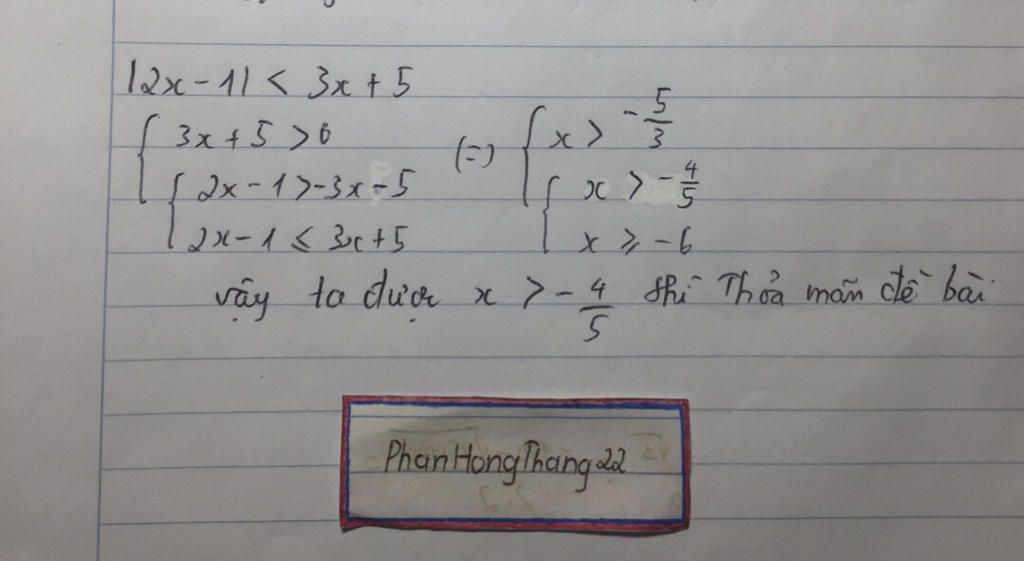 |2x - 1| < 3x + 5
{ 3x + 5 > 0 (=) { x > -5/3
{ 2x - 1 > -3x - 5 { x > -4/5
2x - 1 ≤ 3x + 5 x ≥ -6
vậy ta được x > -4/5 thì Thỏa mãn đề bài
PhanHongThang22